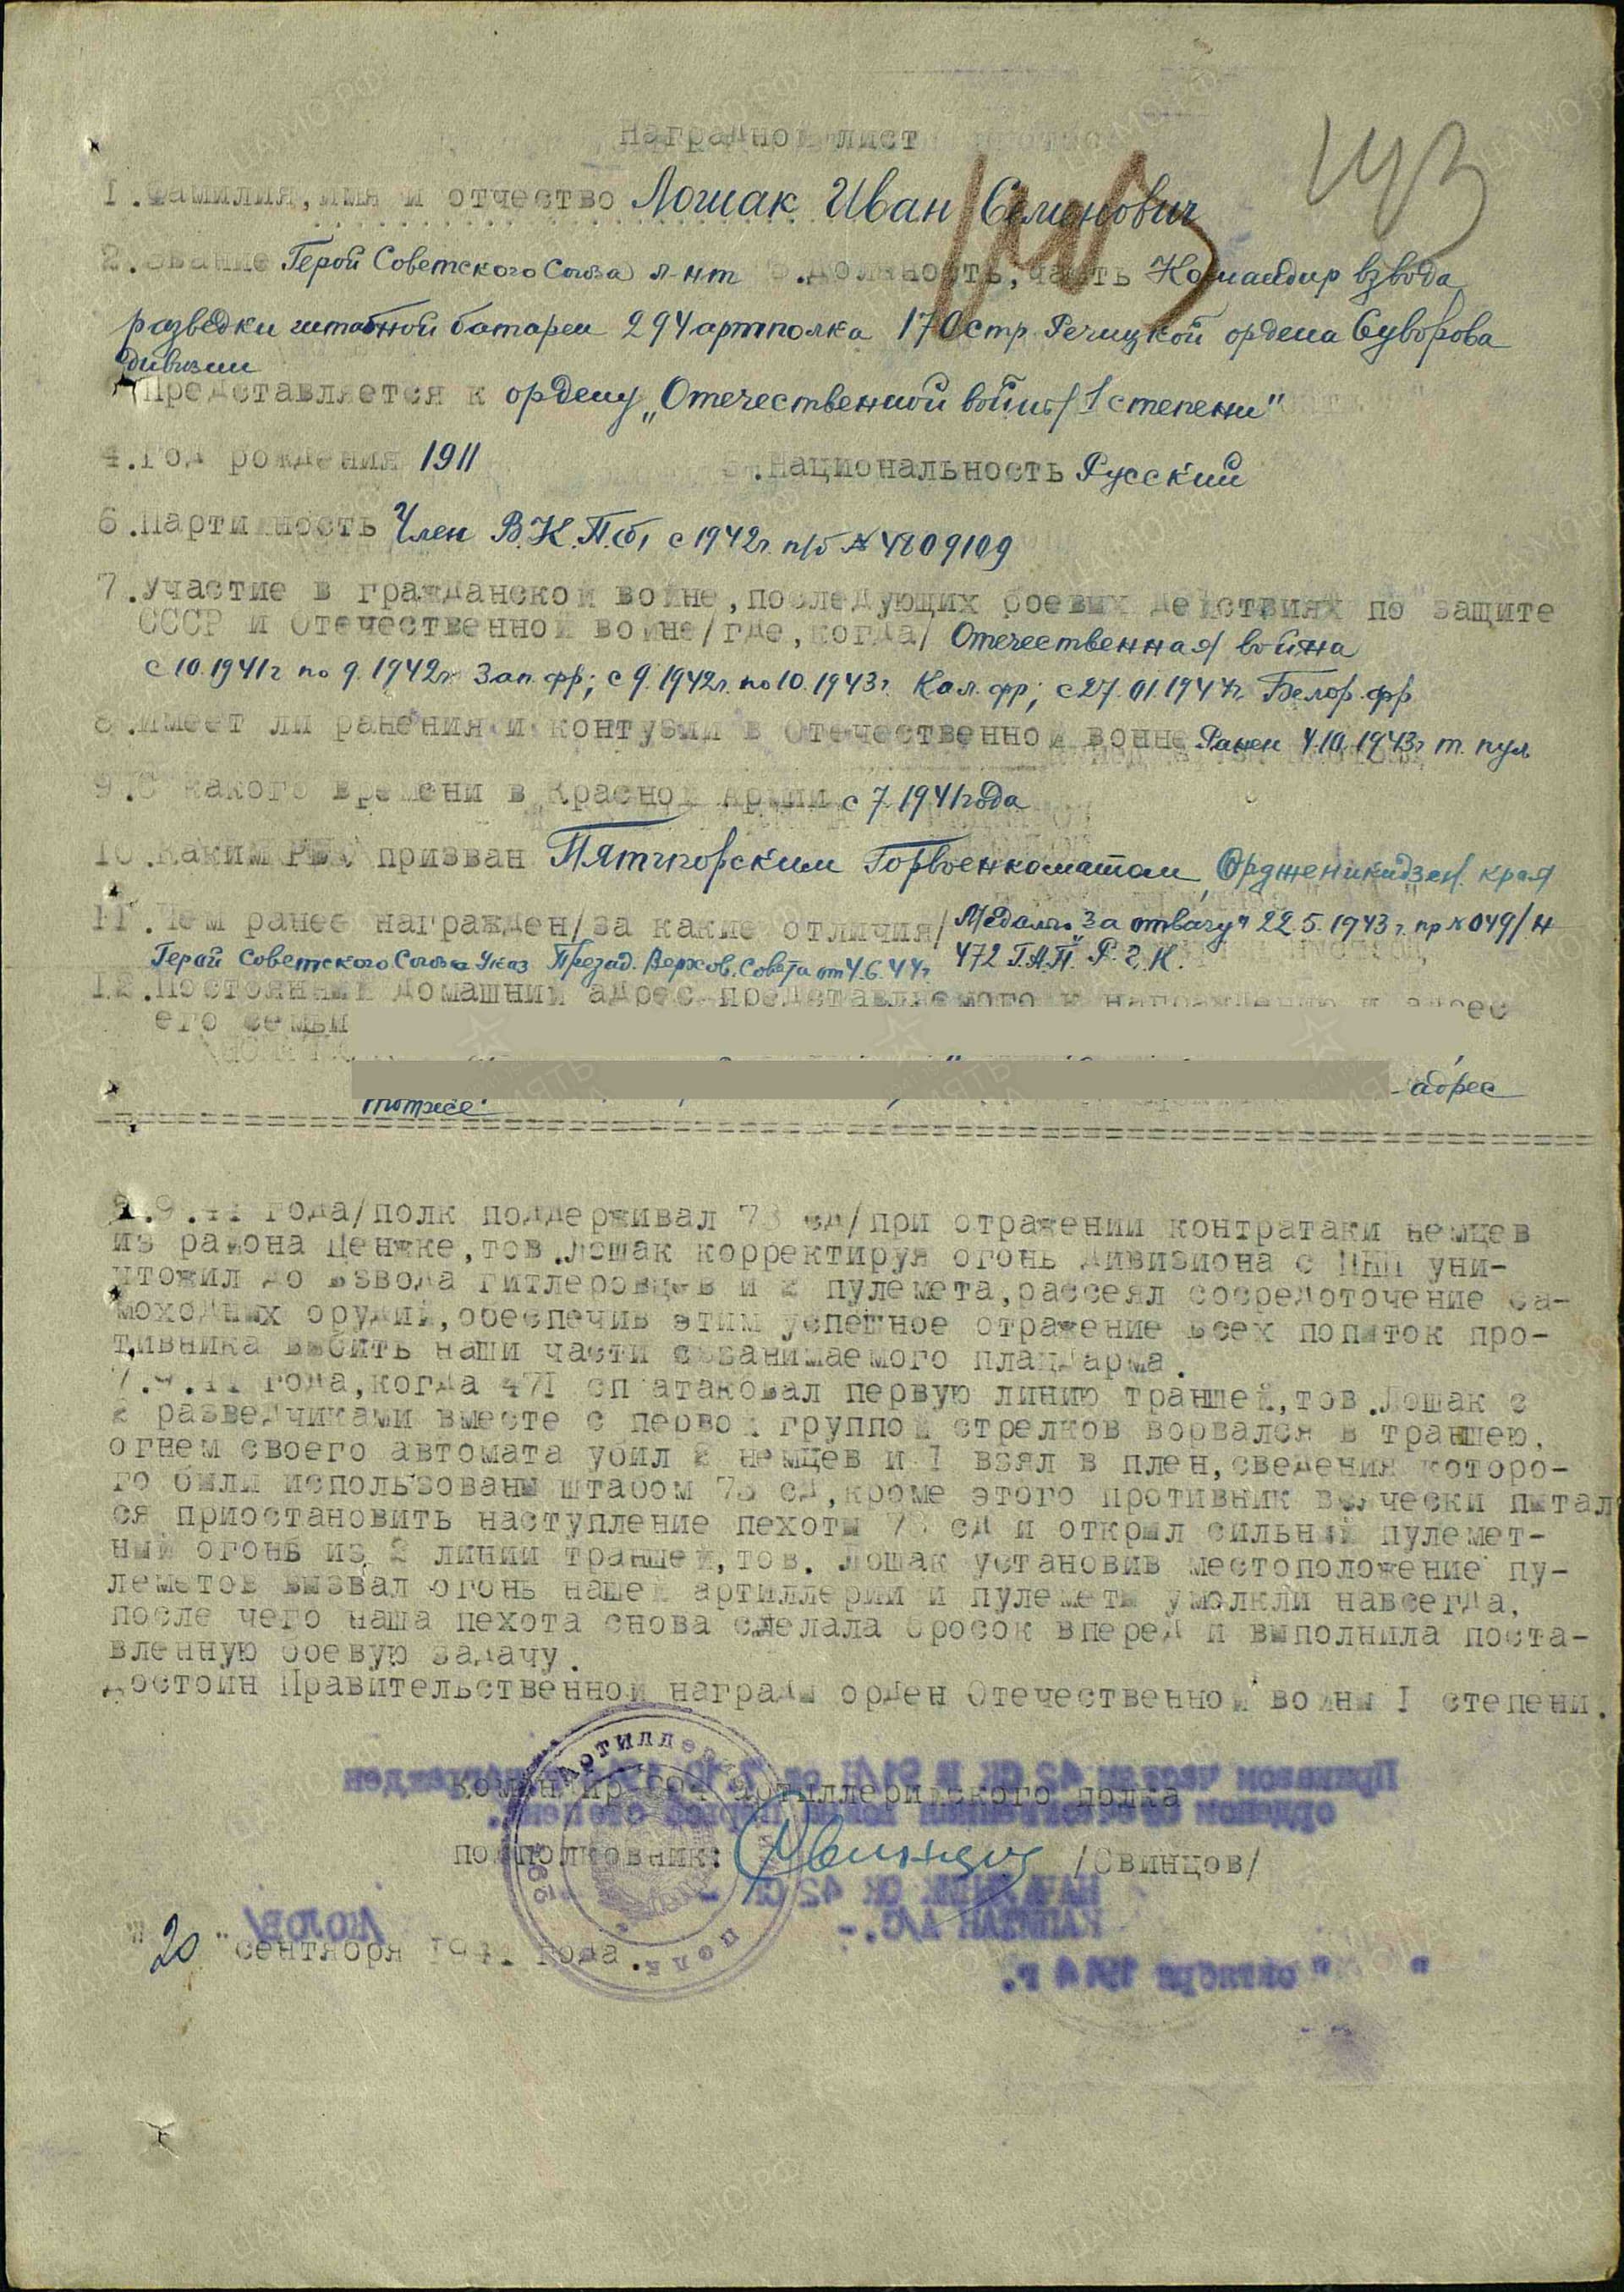 Наградной лист
1.Фамилия,имя и отчество Лошак Иван Семенович
2.Звание Герой Советского Союза л-нт 3.Должность,часть Командир взвода
разведки штабной батареи 294 артполка 170 стр. Речицкой ордена Суворова
дивизии
Представляется к ордену „Отечественной войны 1 степени"
4.Год рождения 1911 5.Национальность Русский
6.Партийность Член В.К.П.б, с 1942г. п/б № 4809109
7.Участие в гражданской войне,последующих боевых действиях по защите
СССР и Отечественной войне/где,когда/ Отечественная война
с 10.1941г по 9.1942г. Зап. фр; с 9.1942г. по 10.1943г. Кал. фр; с 27.01.1944г. Белор. фр
8.Имеет ли ранения и контузии в Отечественной войне Ранен 4.10.1943г т. пул
9.С какого времени в Красной Армии с 7.1941 года
10.Каким РВК призван Пятигорским Горвоенкоматом, Орджоникидзен. края
11.Чем ранее награжден/за какие отличия/ Медалью „За отвагу" 22.5.1943г. пр № 049/н
Герой Советского Союза Указ Презид. Верхов. Совета от 4.6.44г. 472 Г.А.П. Р.Г.К.
12.Постоянный домашний адрес представляемого к награждению и адрес
его семьи
адрес
тотже.
.9.44 года/полк поддерживал 73 сд/при отражении контратаки немцев
из района Ценжке,тов.Лошак корректируя огонь дивизиона с ПНП уни-
чтожил до взвода гитлеровцев и 2 пулемета,рассеял сосредоточение са-
моходных орудий,обеспечив этим успешное отражение всех попыток про-
тивника выбить наши части с занимаемого плацдарма.
7.9.44 года,когда 471 сп атаковал первую линию траншей,тов.Лошак с
2 разведчиками вместе с первой группой стрелков ворвался в траншею,
огнем своего автомата убил 2 немцев и 1 взял в плен,сведения которо-
го были использованы штабом 73 сд,кроме этого противник всячески питал
ся приостановить наступление пехоты 73 сд и открыл сильный пулемет-
ный огонь из 2 линии траншей,тов. Лошак установив местоположение пу-
леметов вызвал огонь нашей артиллерии и пулеметы умолкли навсегда,
после чего наша пехота снова сделала бросок вперед и выполнила поста-
вленную боевую задачу.
Достоин Правительственной награды орден Отечественной войны I степени.
Командир 294 артиллерийского полка
подполковник: /Свинцов/
"20" сентября 1944 года.